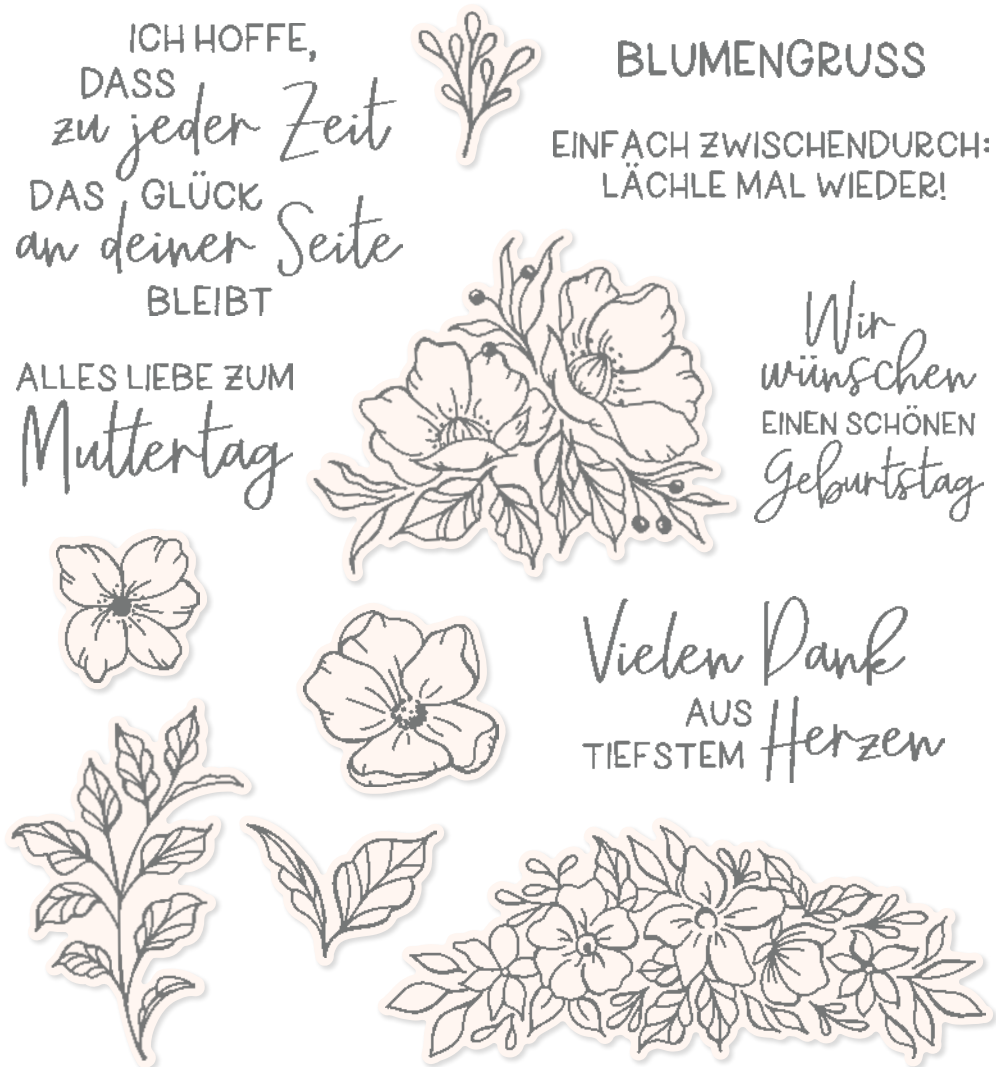 ICH HOFFE,
DASS
zu jeder Zeit
DAS GLÜCK
an deiner Seite
BLEIBT
BLUMENGRUSS
EINFACH ZWISCHENDURCH:
LÄCHLE MAL WIEDER!
ALLES LIEBE ZUM
Muttertag
Wir
wünschen
EINEN SCHÖNEN
Geburtstag
Vielen Dank
AUS
TIEFSTEM Herzen